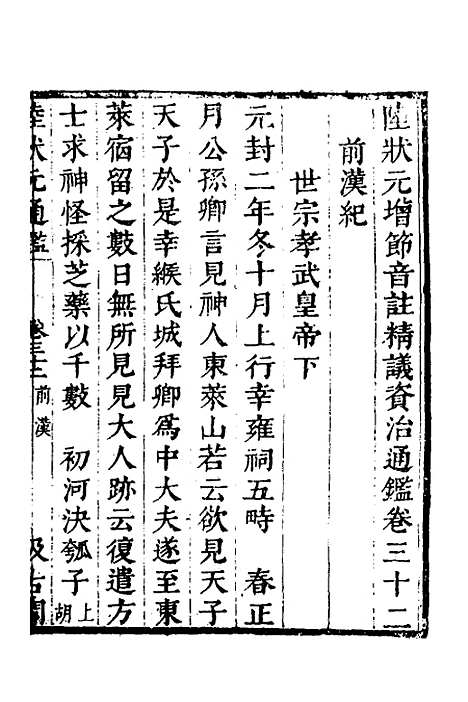 陸狀元增節音註精議資治通鑑卷三十二
前漢紀
世宗孝武皇帝下
元封二年冬十月上行幸雍祠五畤　春正
月公孫卿言見神人東萊山若云欲見天子
天子於是幸緱氏城拜卿爲中大夫遂至東
萊宿留之數日無所見見大人跡云復遣方
士求神怪採芝藥以千數　初河決瓠子上胡
陸狀元通鑑　卷三十二　前漢　汲古閣